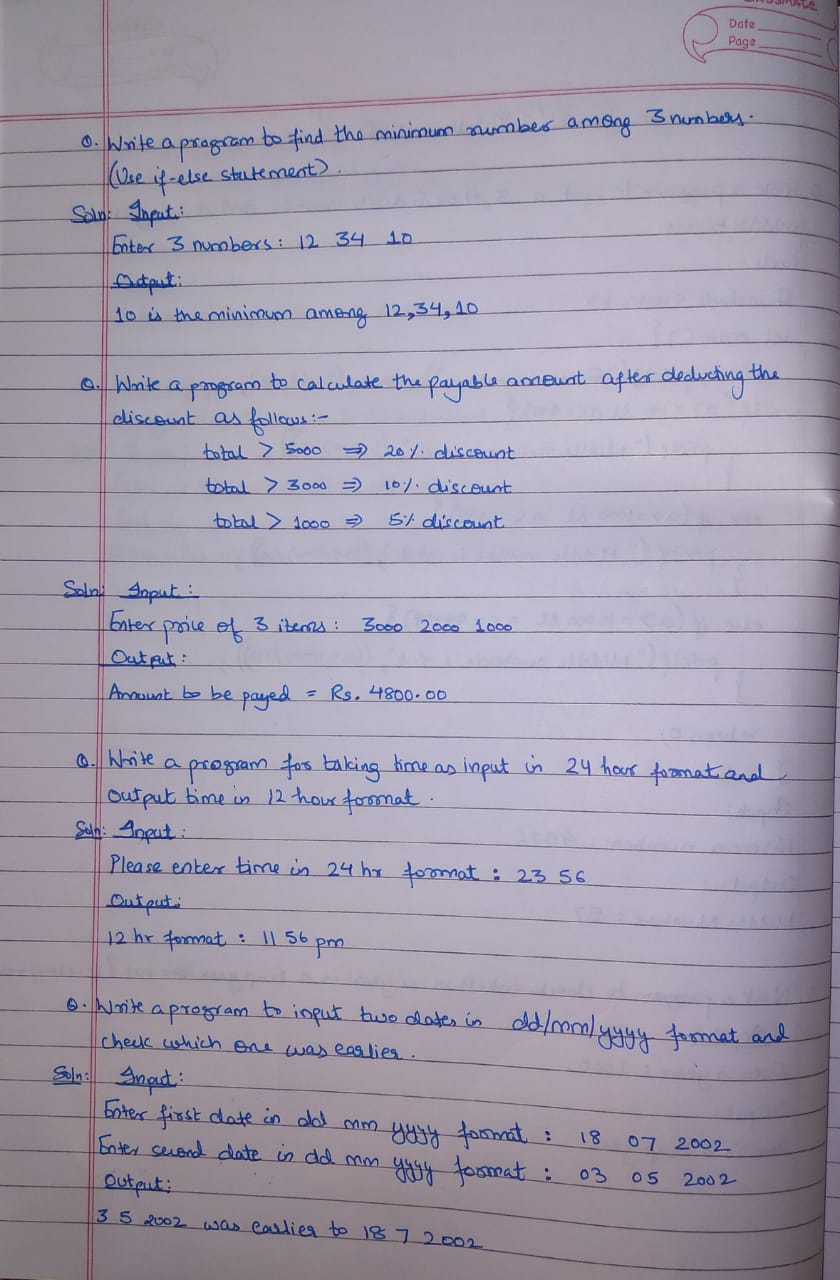 CLASSMATE
Date
Page
Q. Write a program to find the minimum number among 3 numbers.
(Use if-else statement).
Soln: Input:
Enter 3 numbers: 12 34 10
Output:
10 is the minimum among 12,34,10
Q. Write a program to calculate the payable amount after deducting the
discount as follows:-
total > 5000 ⇒ 20% discount
total > 3000 ⇒ 10% discount
total > 1000 ⇒ 5% discount
Soln: Input:
Enter price of 3 items: 3000 2000 1000
Output:
Amount to be payed = Rs. 4800.00
Q. Write a program for taking time as input in 24 hour format and
output time in 12 hour format.
Soln: Input:
Please enter time in 24 hr format : 23 56
Output:
12 hr format : 11 56 pm
Q. Write a program to input two dates in dd/mm/yyyy format and
check which one was earlier.
Soln: Input:
Enter first date in dd mm yyyy format : 18 07 2002
Enter second date in dd mm yyyy format : 03 05 2002
Output:
3 5 2002 was earlier to 18 7 2002